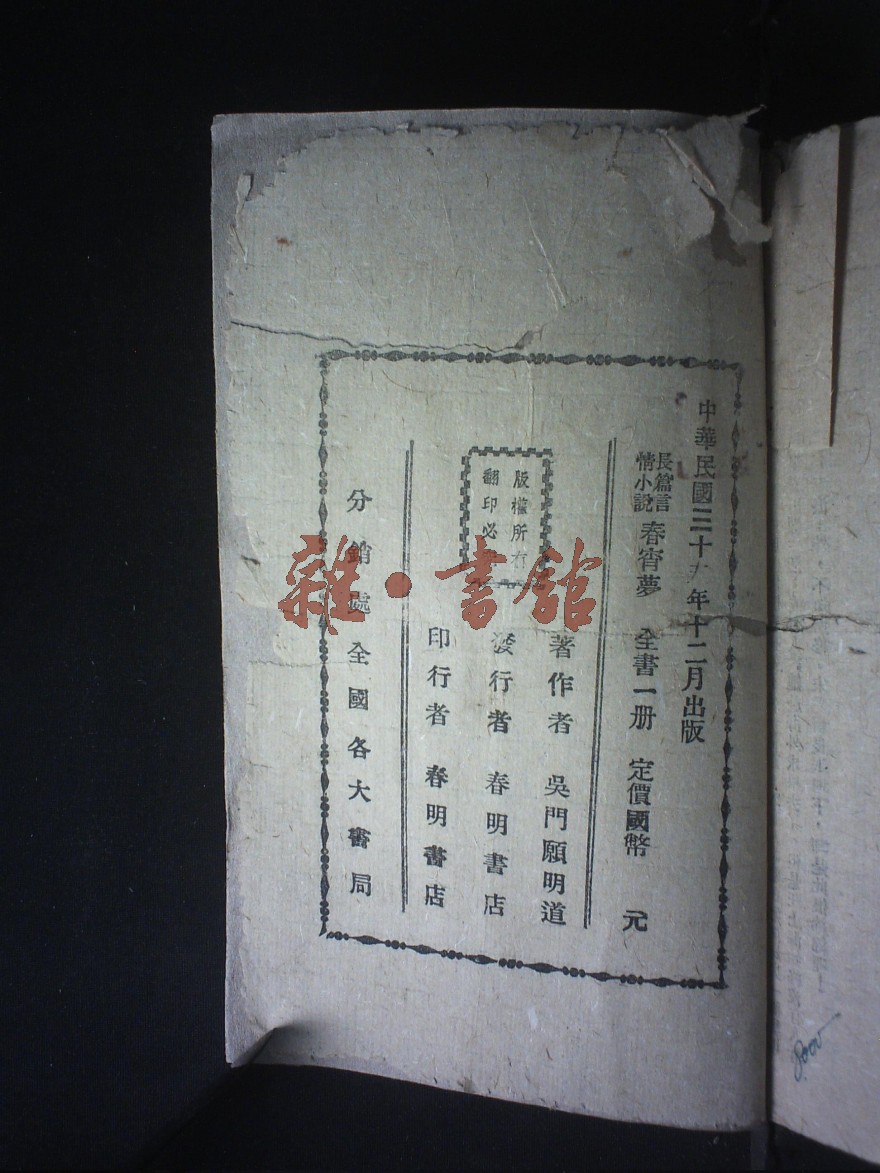 中華民國三十 年十二月出版
長篇言
情小說
春宵夢 全書一册 定價國幣 元
著作者 吳門願明道
發行者 春明書店
印行者 春明書店
版權所有
翻印必
分銷處全國各大書局
雜·書館
8000